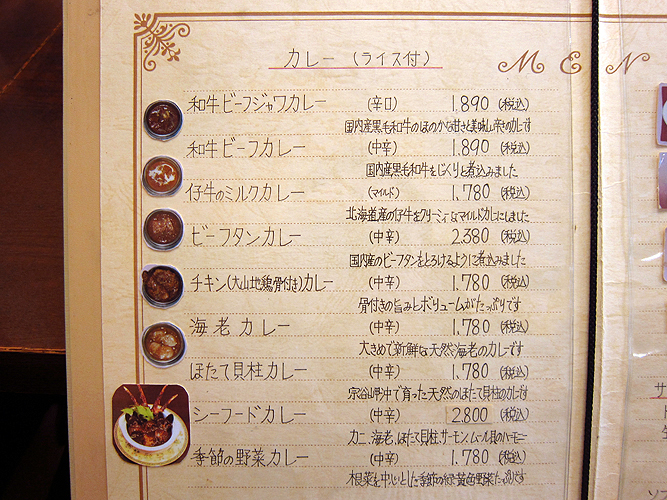 カレー（ライス付）
MEN
和牛ビーフジャワカレー （辛口） 1.890 （税込）
国内産黒毛和牛のほのかな甘さと美味しい辛さのカレーです
和牛ビーフカレー （中辛） 1.890 （税込）
国内産黒毛和牛をじっくりと煮込みました
仔牛のミルクカレー （マイルド） 1.780 （税込）
北海道産の仔牛をクリーミィなマイルドカレーにしました
ビーフタンカレー （中辛） 2.380 （税込）
国内産のビーフタンをとろけるように煮込みました
チキン（大山地鶏骨付き）カレー （中辛） 1.780 （税込）
骨付きの旨みとボリュームがたっぷりです
海老カレー （中辛） 1.780 （税込）
大きめで新鮮な天然海老のカレーです
ほたて貝柱カレー （中辛） 1.780 （税込）
宗谷岬沖で育った天然のほたて貝柱のカレーです
シーフードカレー （中辛） 2.800 （税込）
カニ、海老、ほたて貝柱、サーモン、ムール貝のハーモニー
季節の野菜カレー （中辛） 1.780 （税込）
根菜を中心とした季節の緑黄色野菜たっぷりです